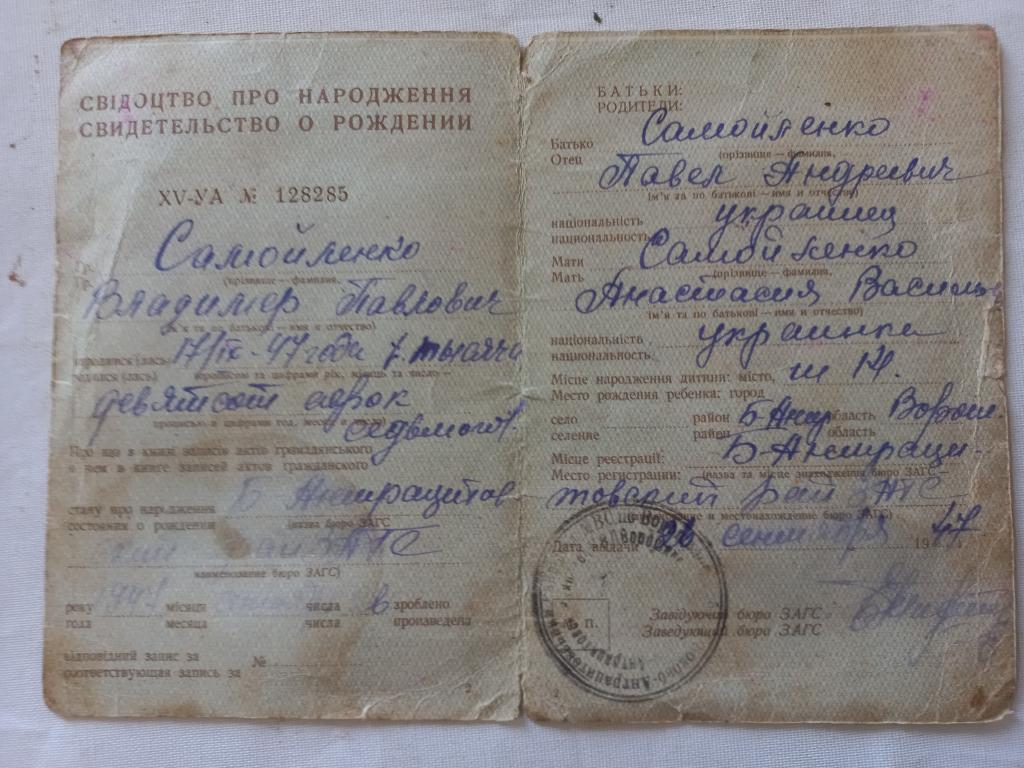 СВІДОЦТВО ПРО НАРОДЖЕННЯ
СВИДЕТЕЛЬСТВО О РОЖДЕНИИ
XV-УА № 128285
Самойленко
Гр.
(прізвище — фамилия,
Владимир Павлович
ім'я та по батькові — имя и отчество)
народився (лась) 17/IX-47 года 1. тысяча
родился (лась) прописью та цифрами рік, місяць та число —
девятсот сорок
прописью и цифрами год, месяц и число)
седьмого
Про що в книзі записів актів громадянського
о чем в книге записей актов гражданского
Б Антрацитов
стану про народження
состояния о рождении (назва бюро ЗАГС
рай ЗАГС
наименование бюро ЗАГС)
року 1947 місяця числа зроблено
года месяца числа произведена
відповідний запис за №
соответствующая запись за
2
БАТЬКИ:
РОДИТЕЛИ:
Самойленко
Батько
Отец (прізвище — фамилия,
Павел Андреевич
ім'я та по батькові — имя и отчество)
національність украинец
национальность
Мати Самойленко
Мать (прізвище — фамилия,
Анастасия Василь
ім'я та по батькові — имя и отчество)
національність украинка
национальность
Місце народження дитини: місто,
Место рождения ребенка: город
село район Б-Антр область Ворош.
селение район область
Місце реєстрації: Б-Антраци-
Место регистрации: (назва та місце знаходження бюро ЗАГС —
товский рай ЗАГС
и местонахождение бюро ЗАГС)
Дата выдачи сентября 1947
п.
Завідуючий бюро ЗАГС
Заведующий бюро ЗАГС